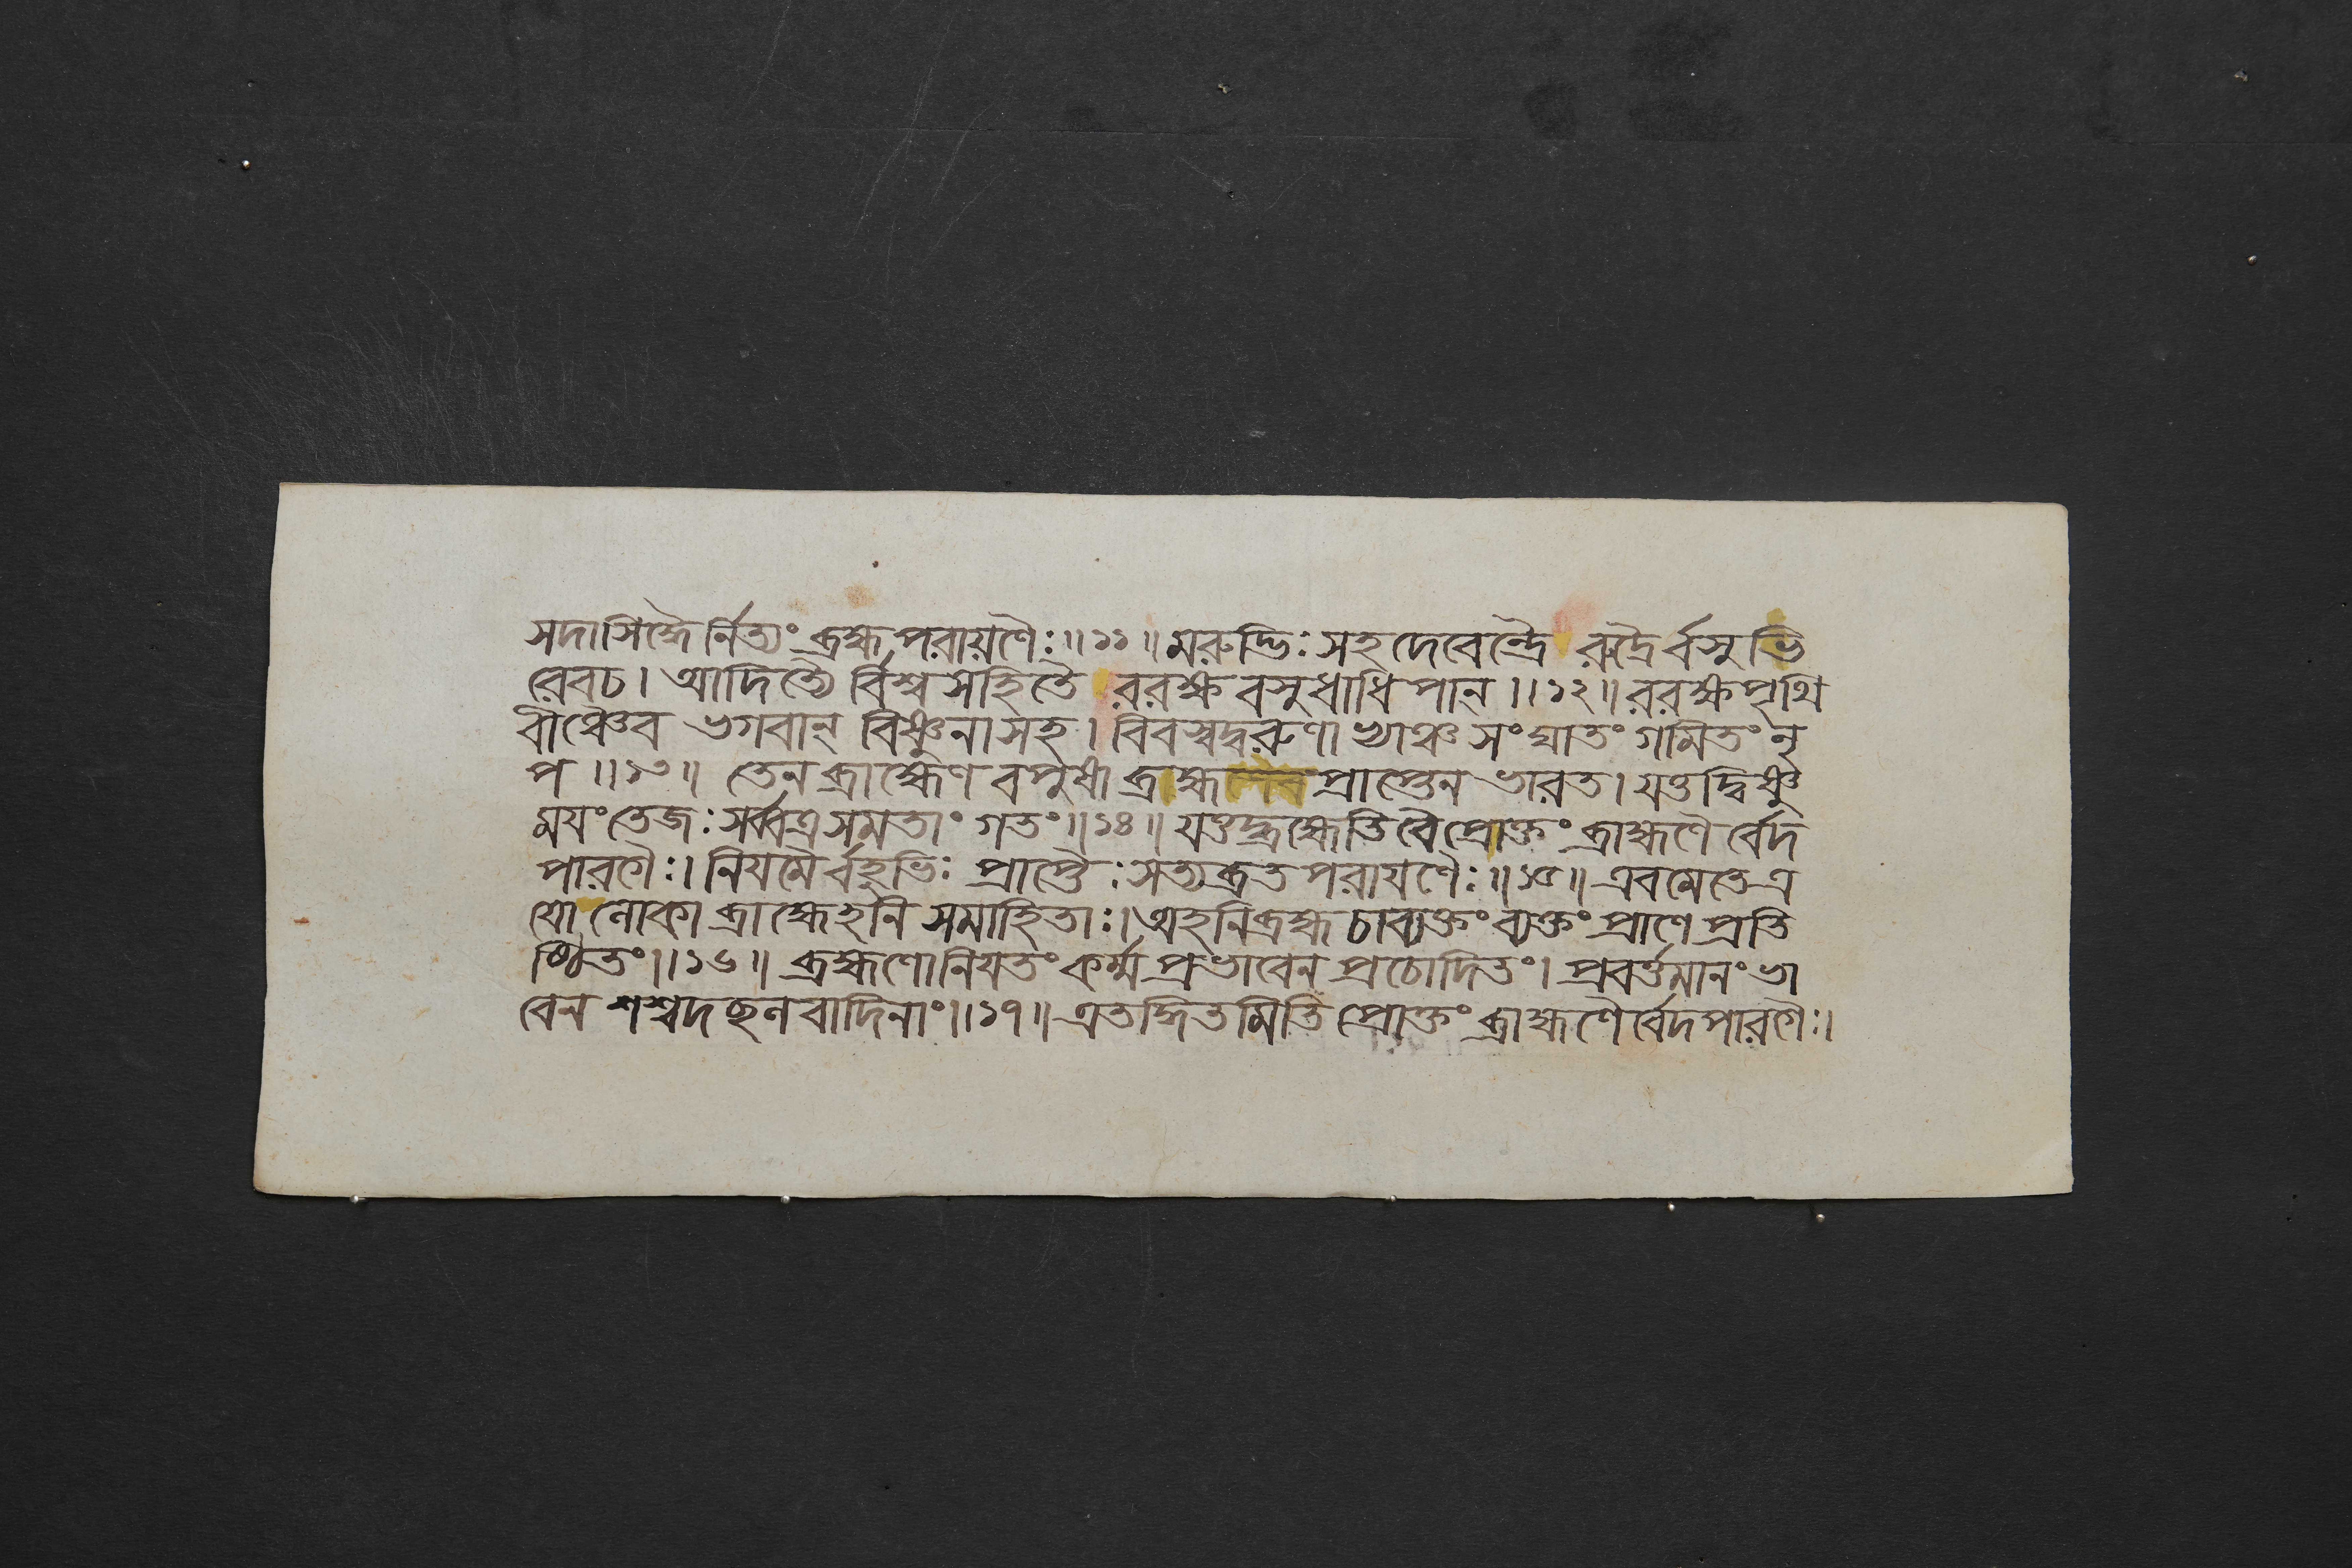 সদাসিদ্ধৈর্নিত্যং ব্রহ্মপরায়ণৈঃ॥১১॥মরুদ্ভিঃসহদেবেন্দ্রৈ রুদ্রৈর্বসুভি
রেবচ। আদিত্যৈ র্বিশ্বসহিতৈ ররক্ষ বসুধাধিপান্॥১২॥ররক্ষপৃথি
বীঞ্চৈব ভগবান্ বিষ্ণুনাসহ। বিবস্বদ্বরুণাখ্যাঞ্চ সংঘাতং গমিতং নৃ
প॥১৩॥ তেন ব্রাহ্মেণ বপুষা ব্রাহ্ম প্রাপ্তেন ভারত। যত্তদ্বিষ্ণু
ময়ং তেজঃসর্ব্বত্রসমতাং গতং॥১৪॥ যত্তদ্ব্রহ্মেতিবৈপ্রোক্তং ব্রাহ্মণৈ র্বেদ
পারগৈঃ। নিয়মৈর্বহুভিঃ প্রাপ্তৈঃসত্যব্রতপরায়ণৈঃ॥১৫॥এবমেতেত্র
য়ো লোকা ব্রাহ্মেহনি সমাহিতাঃ।অহনিব্রহ্ম চাব্যক্তং ব্যক্তং প্রাণে প্রতি
ষ্ঠিতং॥১৬॥ ব্রহ্মণোনিয়তং কর্ম্ম প্রভাবেন প্রচোদিতং। প্রবর্ত্তমানং ভা
বেন শশ্বদছলবাদিনাং॥১৭॥এতদ্ধিতমিতি প্রোক্তং ব্রাহ্মণৈর্বেদপারগৈঃ।